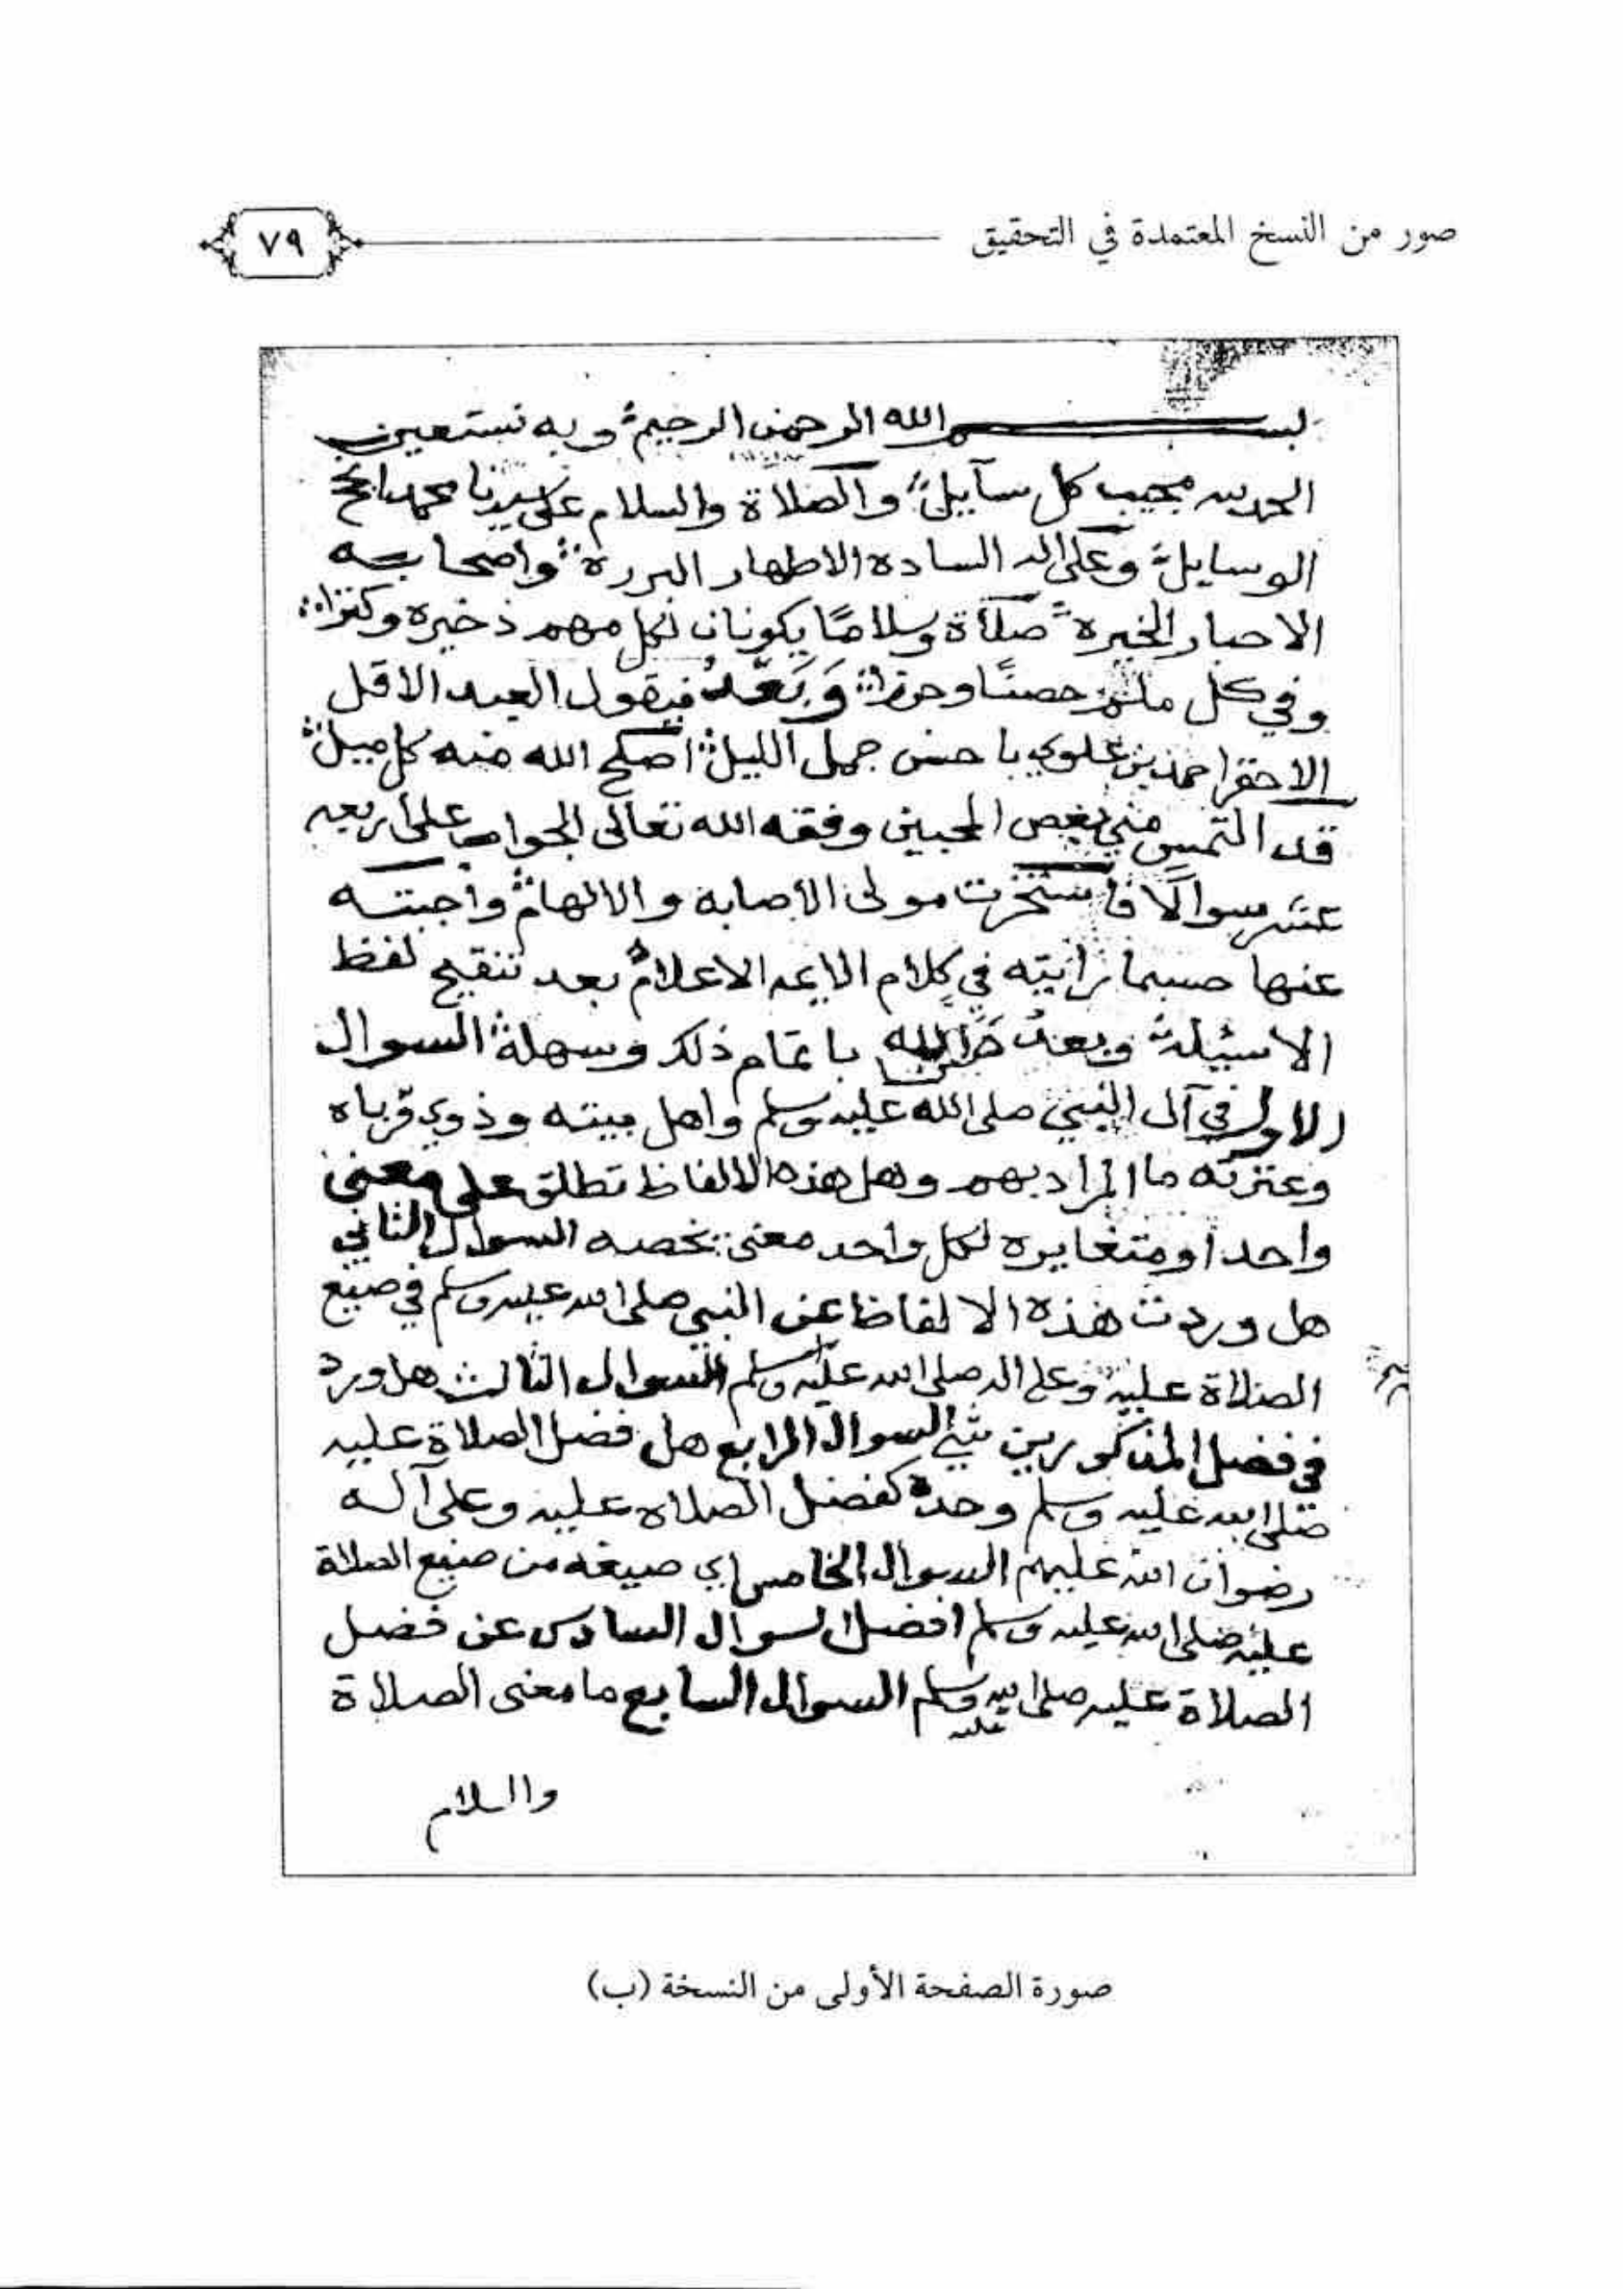 صور من النسخ المعتمدة في التحقيق
٧٩
بسم الله الرحمن الرحيم وبه نستعين
الحمد لله مجيب كل سآيل والصلاة والسلام على سيدنا محمد انجح
الوسايل وعلى اله السادة الاطهار البررة واصحابه
الاحبار الخيره صلاة وسلامًا يكونان لكل مهم ذخيره وكنزا
وفي كل ملم حصنًا وحرزا وَبَعْدُ فيقول العبد الاقل
الاحقر احمد بن علوي باحسن جمل الليل اصلح الله منه كل ميل
قد التمس مني بعض المحبين وفقه الله تعالى الجواب على اربعه
عشر سوالًا فاستخرت مولى الأصابه والالهام واجبته
عنها حسبما رايته في كلام الايمه الاعلام بعد تنقيح لفظ
الاسيلة وبعد باتمام ذلك وسهلة السوال
الاول في آل النبي صلى الله عليه وسلم واهل بيته وذوي قرباه
وعترته ما المراد بهم وهل هذه الالفاظ تطلق على معنى
واحد او متغايره لكل واحد معنى يخصه السوال الثاني
هل وردت هذه الالفاظ عن النبي صلى الله عليه وسلم في صيغ
الصلاة عليه وعلى اله صلى الله عليه وسلم السوال الثالث هل ورد
في فضل المذكورين شي السوال الرابع هل فضل الصلاة عليه
صلى الله عليه وسلم وحده كفضل الصلاه عليه وعلى آله
رضوان الله عليهم السوال الخامس اي صيغه من صيغ الصلاة
عليه صلى الله عليه وسلم افضل السوال السادس عن فضل
الصلاة عليه صلى الله عليه وسلم السوال السابع ما معنى الصلاة
والسلام
صورة الصفحة الأولى من النسخة (ب)